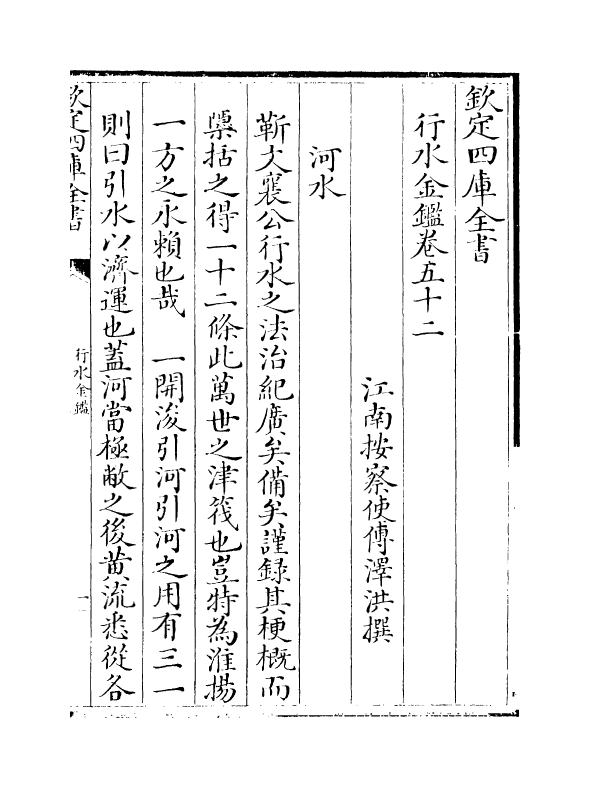 欽定四庫全書
行水金鑑卷五十二
江南按察使傅澤洪撰
河水
靳文襄公行水之法治紀廣矣備矣謹録其梗概而
檃括之得一十二條此萬世之津筏也豈特為淮揚
一方之永賴也哉　一開浚引河引河之用有三一
則曰引水以濟運也蓋河當極敝之後黄流悉從各
欽定四庫全書
行水金鑑
一